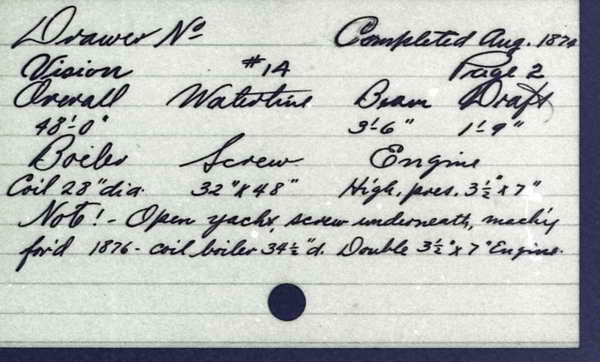 Drawer No Completed Aug. 1874
Vision #14 Page 2
Overall Waterline Beam Draft
48'-0" 9'-6" 1'-9"
Boiler Screw Engine
Coil 28"dia. 32"x48" High. pres. 3½"x7"
Note! - Open yacht, screw underneath, mach'y
for'd 1876 - coil boiler 34½"d. Double 3½"x7" Engine.